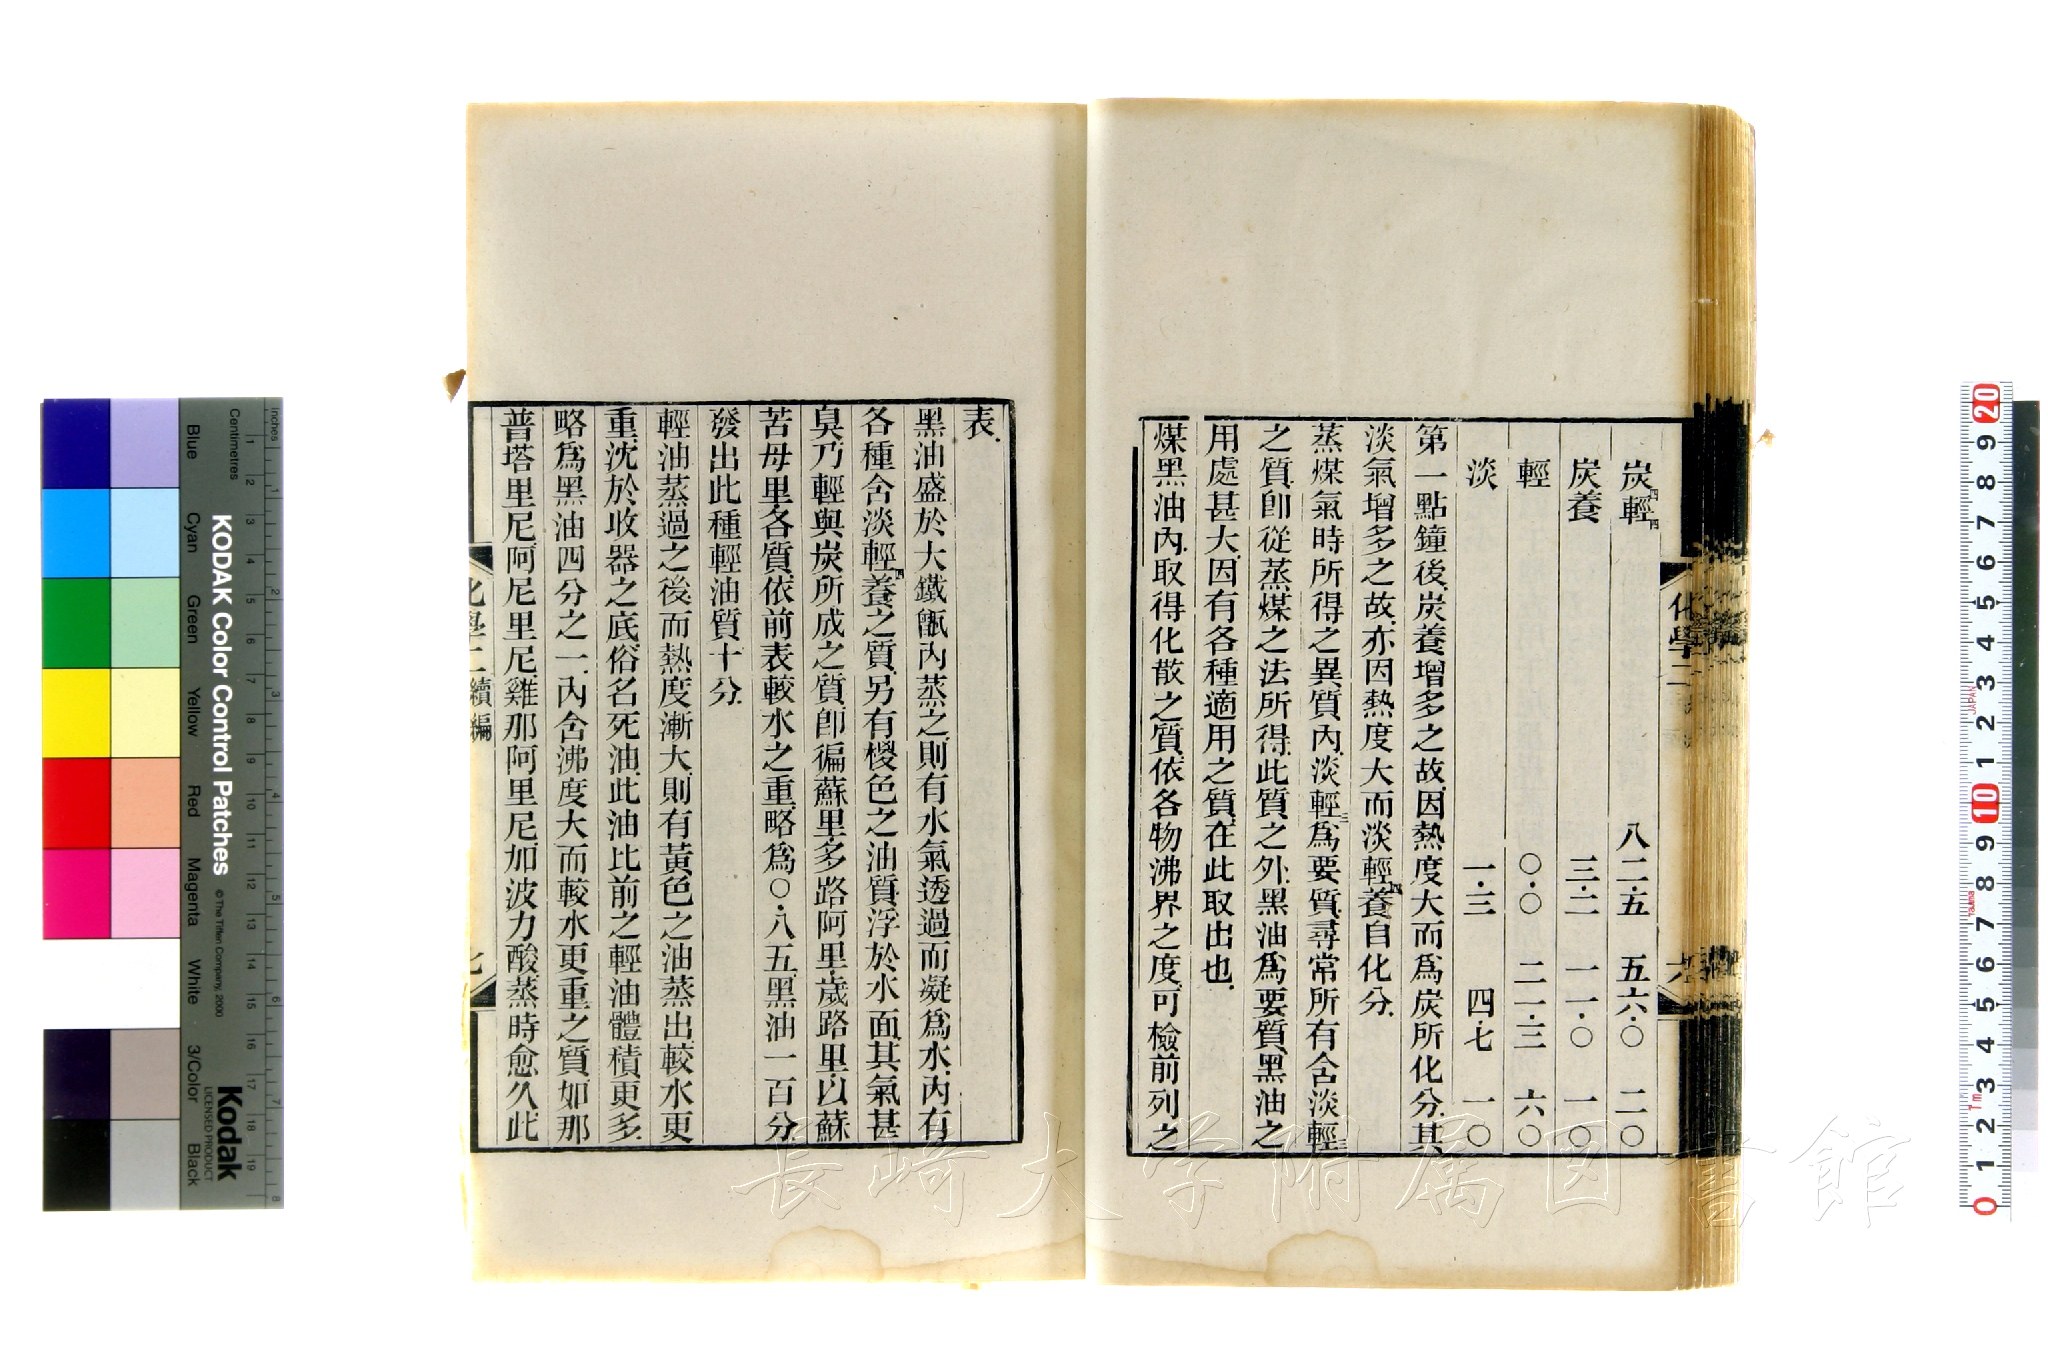 炭四輕四　八二·五　五六·〇　二〇
炭養　三·二　一一·〇　一〇
輕　〇·〇　二一·三　六〇
淡　一·三　四·七　一〇
第一點鐘後炭養增多之故因熱度大而爲炭所化分其
淡氣增多之故亦因熱度大而淡輕四養自化分
蒸煤氣時所得之異質內淡輕三爲要質尋常所有含淡輕三
之質卽從蒸煤之法所得此質之外黑油爲要質黑油之
用處甚大因有各種適用之質在此取出也
煤黑油內取得化散之質依各物沸界之度可檢前列之
化學二
六
表
黑油盛於大鐵甑內蒸之則有水氣透過而凝爲水內有
各種含淡輕四養之質另有椶色之油質浮於水面其氣甚
臭乃輕與炭所成之質卽徧蘇里多路阿里歲路里以蘇
苦母里各質依前表較水之重略爲〇·八五黑油一百分
發出此種輕油質十分
輕油蒸過之後而熱度漸大則有黃色之油蒸出較水更
重沈於收器之底俗名死油此油比前之輕油體積更多
略爲黑油四分之一內含沸度大而較水更重之質如那
普塔里尼阿尼里尼雞那阿里尼加波力酸蒸時愈久此
化學二續編
七
KODAK Color Control Patches
© The Tiffen Company, 2000
Kodak
LICENSED PRODUCT
inches
Centimetres
Blue
Cyan
Green
Yellow
Red
Magenta
White
3/Color
Black
長崎大学附属図書館